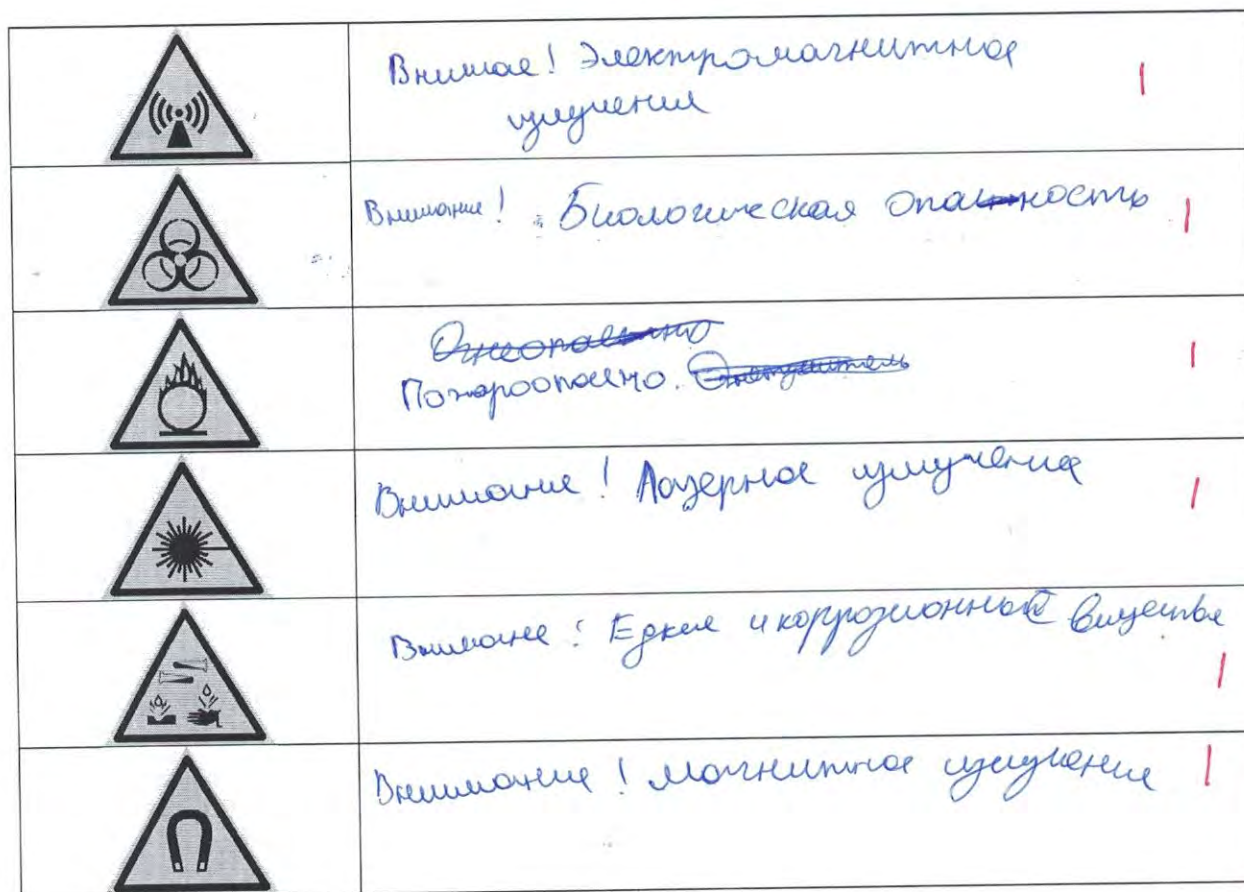 Внимае! Электромагнитное
излучения
1
Внимание! Биологическая опасность
1
Пожароопасно.
1
Внимание! Лазерное излучение
1
Внимание! Едкие и коррозионные вищества
1
Внимание! магнитное излучение
1